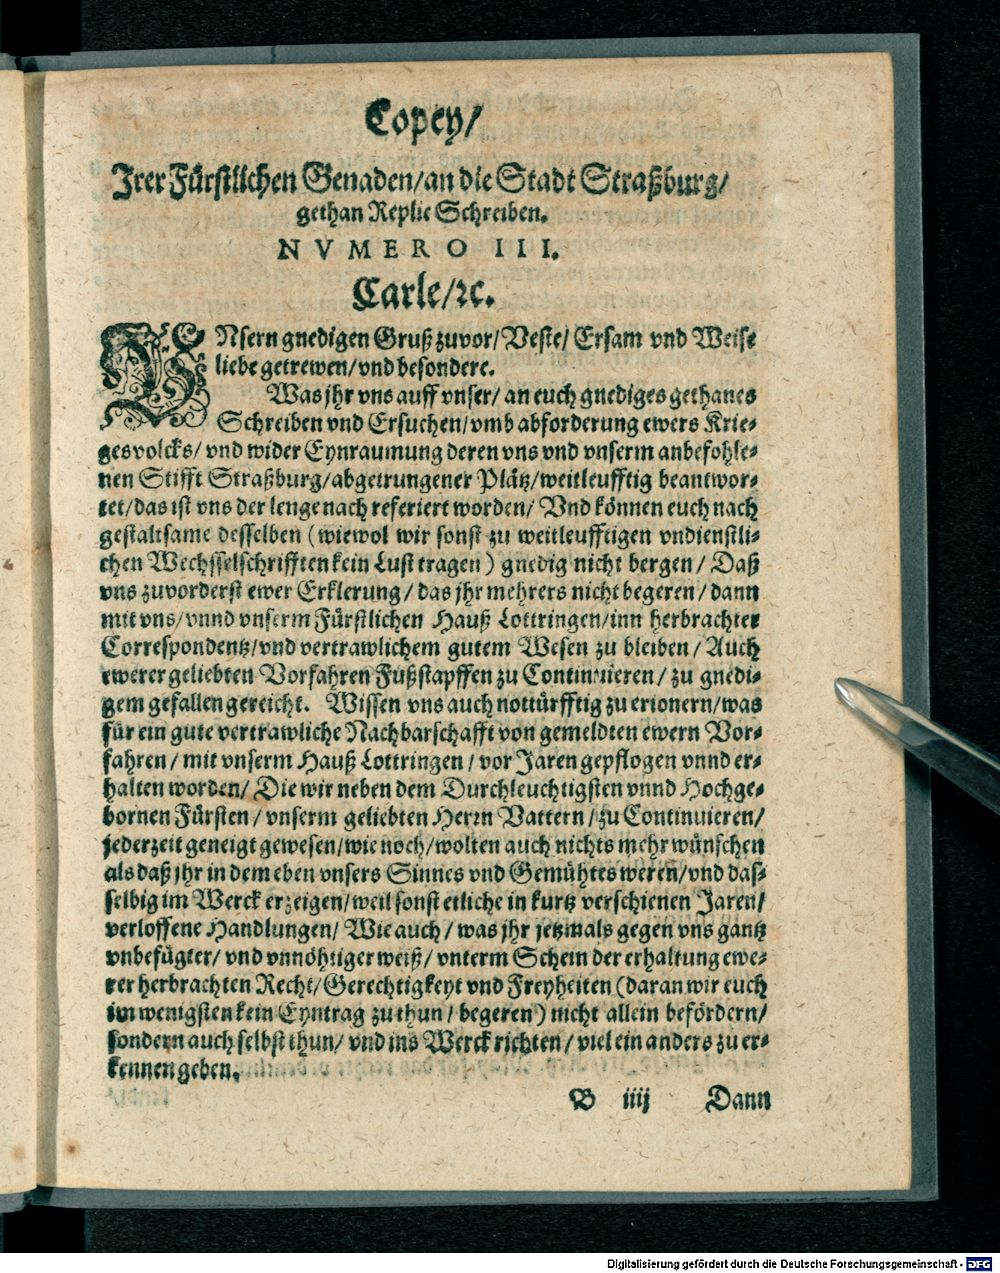 Copey/
Jrer Fürstlichen Genaden/an die Stadt Straßburg/
gethan Replic Schreiben.
NVMERO III.
Carle/ꝛc.
VNsern gnedigen Gruß zuvor/Veste/ Ersam vnd Weise
liebe getrewen/vnd besondere.
Was jhr vns auff vnser/ an euch gnediges gethanes
Schreiben vnd Ersuchen/vmb abforderung ewers Krie-
gesvolcks/ vnd wider Eynraumung deren vns vnd vnserm anbefohle-
nen Stifft Straßburg/abgetrungener Plätz/weitleufftig beantwor-
tet/das ist vns der lenge nach referiert worden/ Vnd können euch nach
gestaltsame desselben (wiewol wir sonst zu weitleufftigen vndienstli-
chen Wechsselschrifften kein Lust tragen) gnedig nicht bergen/ Daß
vns zuvorderst ewer Erklerung/das jhr mehrers nicht begeren/dann
mit vns/vnnd vnserm Fürstlichen Hauß Lottringen/inn herbrachter
Correspondentz/vnd vertrawlichem gutem Wesen zu bleiben/Auch
ewerer geliebten Vorfahren Fußstapffen zu Continuieren/ zu gnedi-
gem gefallen gereicht. Wissen vns auch nottürfftig zu erionern/was
für ein gute vertrawliche Nachbarschafft von gemeldten ewern Vor-
fahren/ mit vnserm Hauß Lottringen/vor Jaren gepflogen vnnd er-
halten worden/ Die wir neben dem Durchleuchtigsten vnnd Hochge-
bornen Fürsten/vnserm geliebten Herrn Vattern/zu Continuieren/
jederzeit geneigt gewesen/wie noch/wolten auch nichts mehr wünschen
als daß jhr in dem eben vnsers Sinnes vnd Gemühtes weren/vnd das-
selbig im Werck erzeigen/weil sonst etliche in kurtz verschienen Jaren/
verloffene Handlungen/ Wie auch/was jhr jetzmals gegen vns gantz
vnbefügter/ vnd vnnöhtiger weiß/ vnterm Schein der erhaltung ewe-
rer herbrachten Recht/Gerechtigkeyt vnd Freyheiten (daran wir euch
im wenigsten kein Eyntrag zu thun/begeren) nicht allein befördern/
sondern auch selbst thun/ vnd ins Werck richten/viel ein anders zu er-
kennen geben.
B iiij Dann
Digitalisierung gefördert durch die Deutsche Forschungsgemeinschaft - DFG